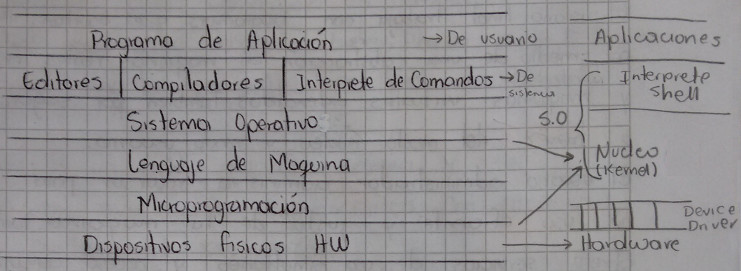 Programa de Aplicación → De usuario
Editores | Compiladores | Interprete de Comandos → De sistema
Sistema Operativo
Lenguaje de Maquina
Microprogramación
Dispositivos fisicos HW
Aplicaciones
Interprete
Shell
S.O
Nucleo
(Kernel)
Device
Driver
Hardware